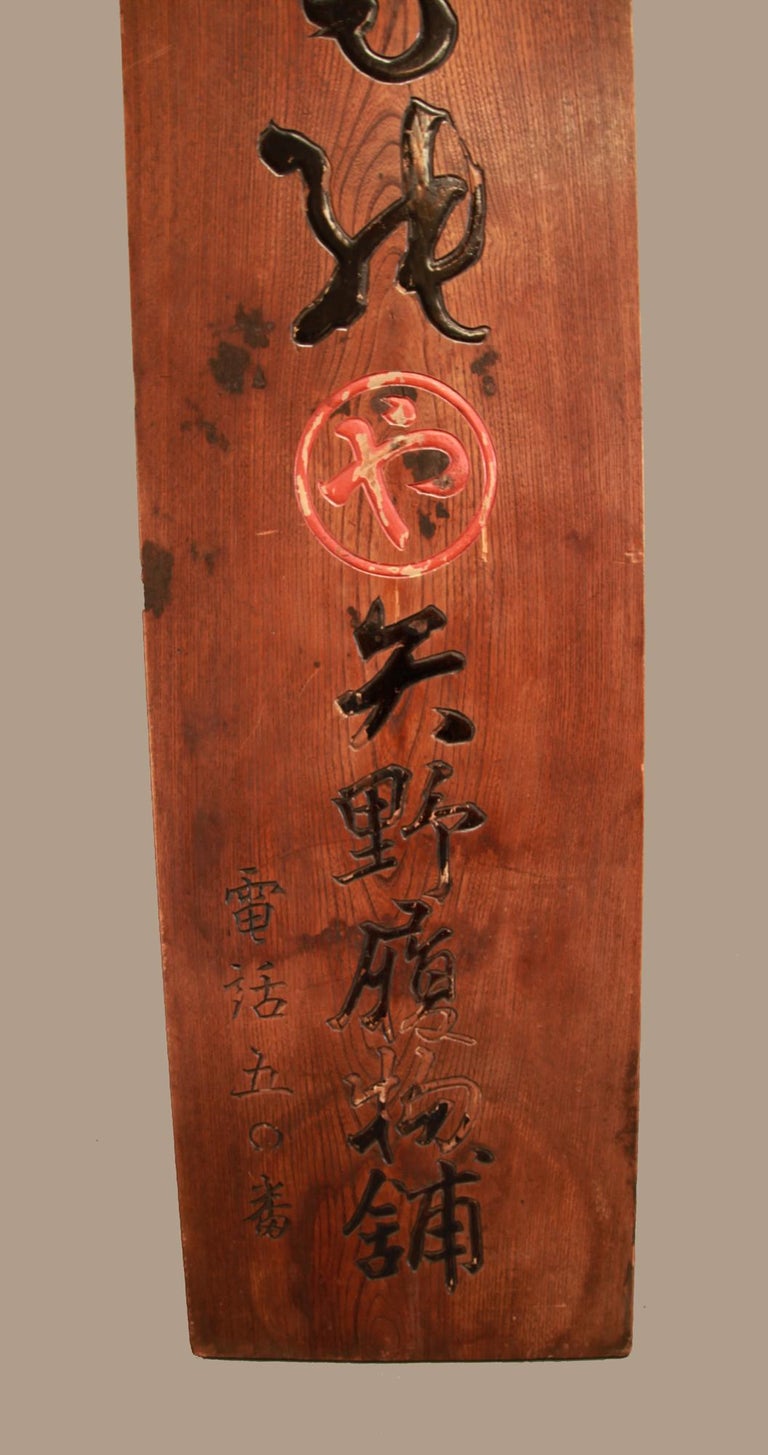 や
矢野履物舗
電話五〇番